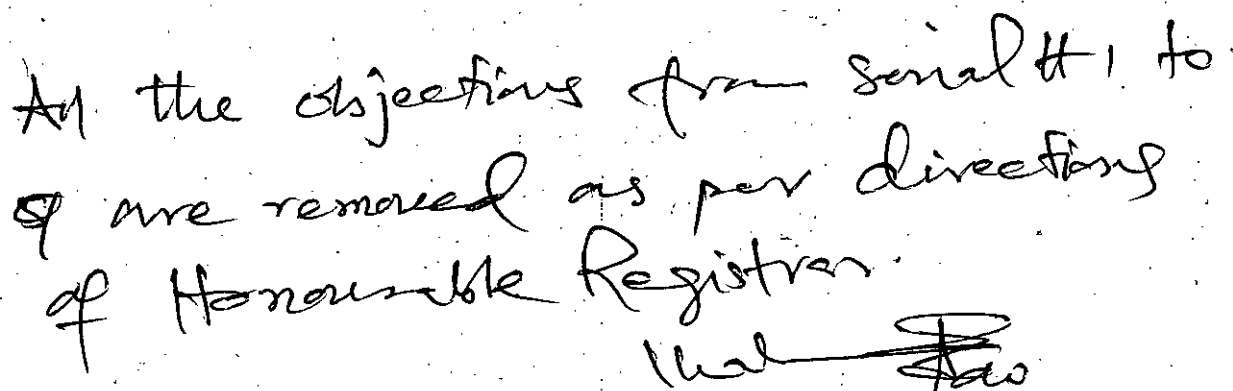 All the objections from serial # 1 to
are removed as per directions
of Honourable Registrar.